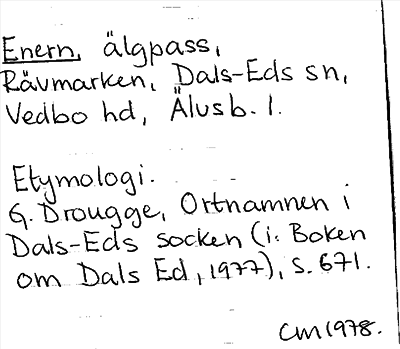 Enern, älgpass,
Rävmarken, Dals-Eds sn,
Vedbo hd, Älvsb. l.
Etymologi.
G. Drougge, Ortnamnen i
Dals-Eds socken (i: Boken
om Dals Ed, 1977), s. 671.
CM 1978.